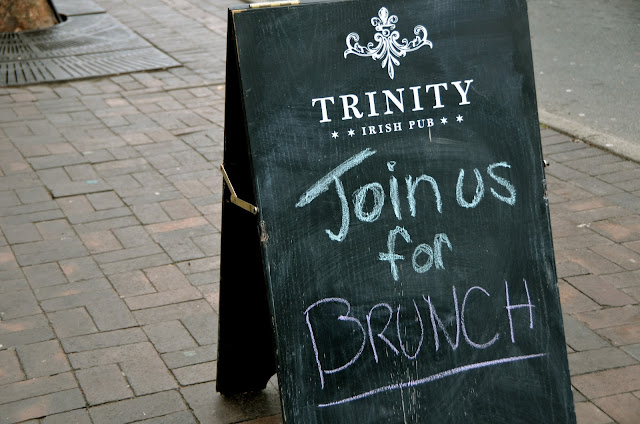 TRINITY
* * IRISH PUB * *
Join us
for
BRUNCh